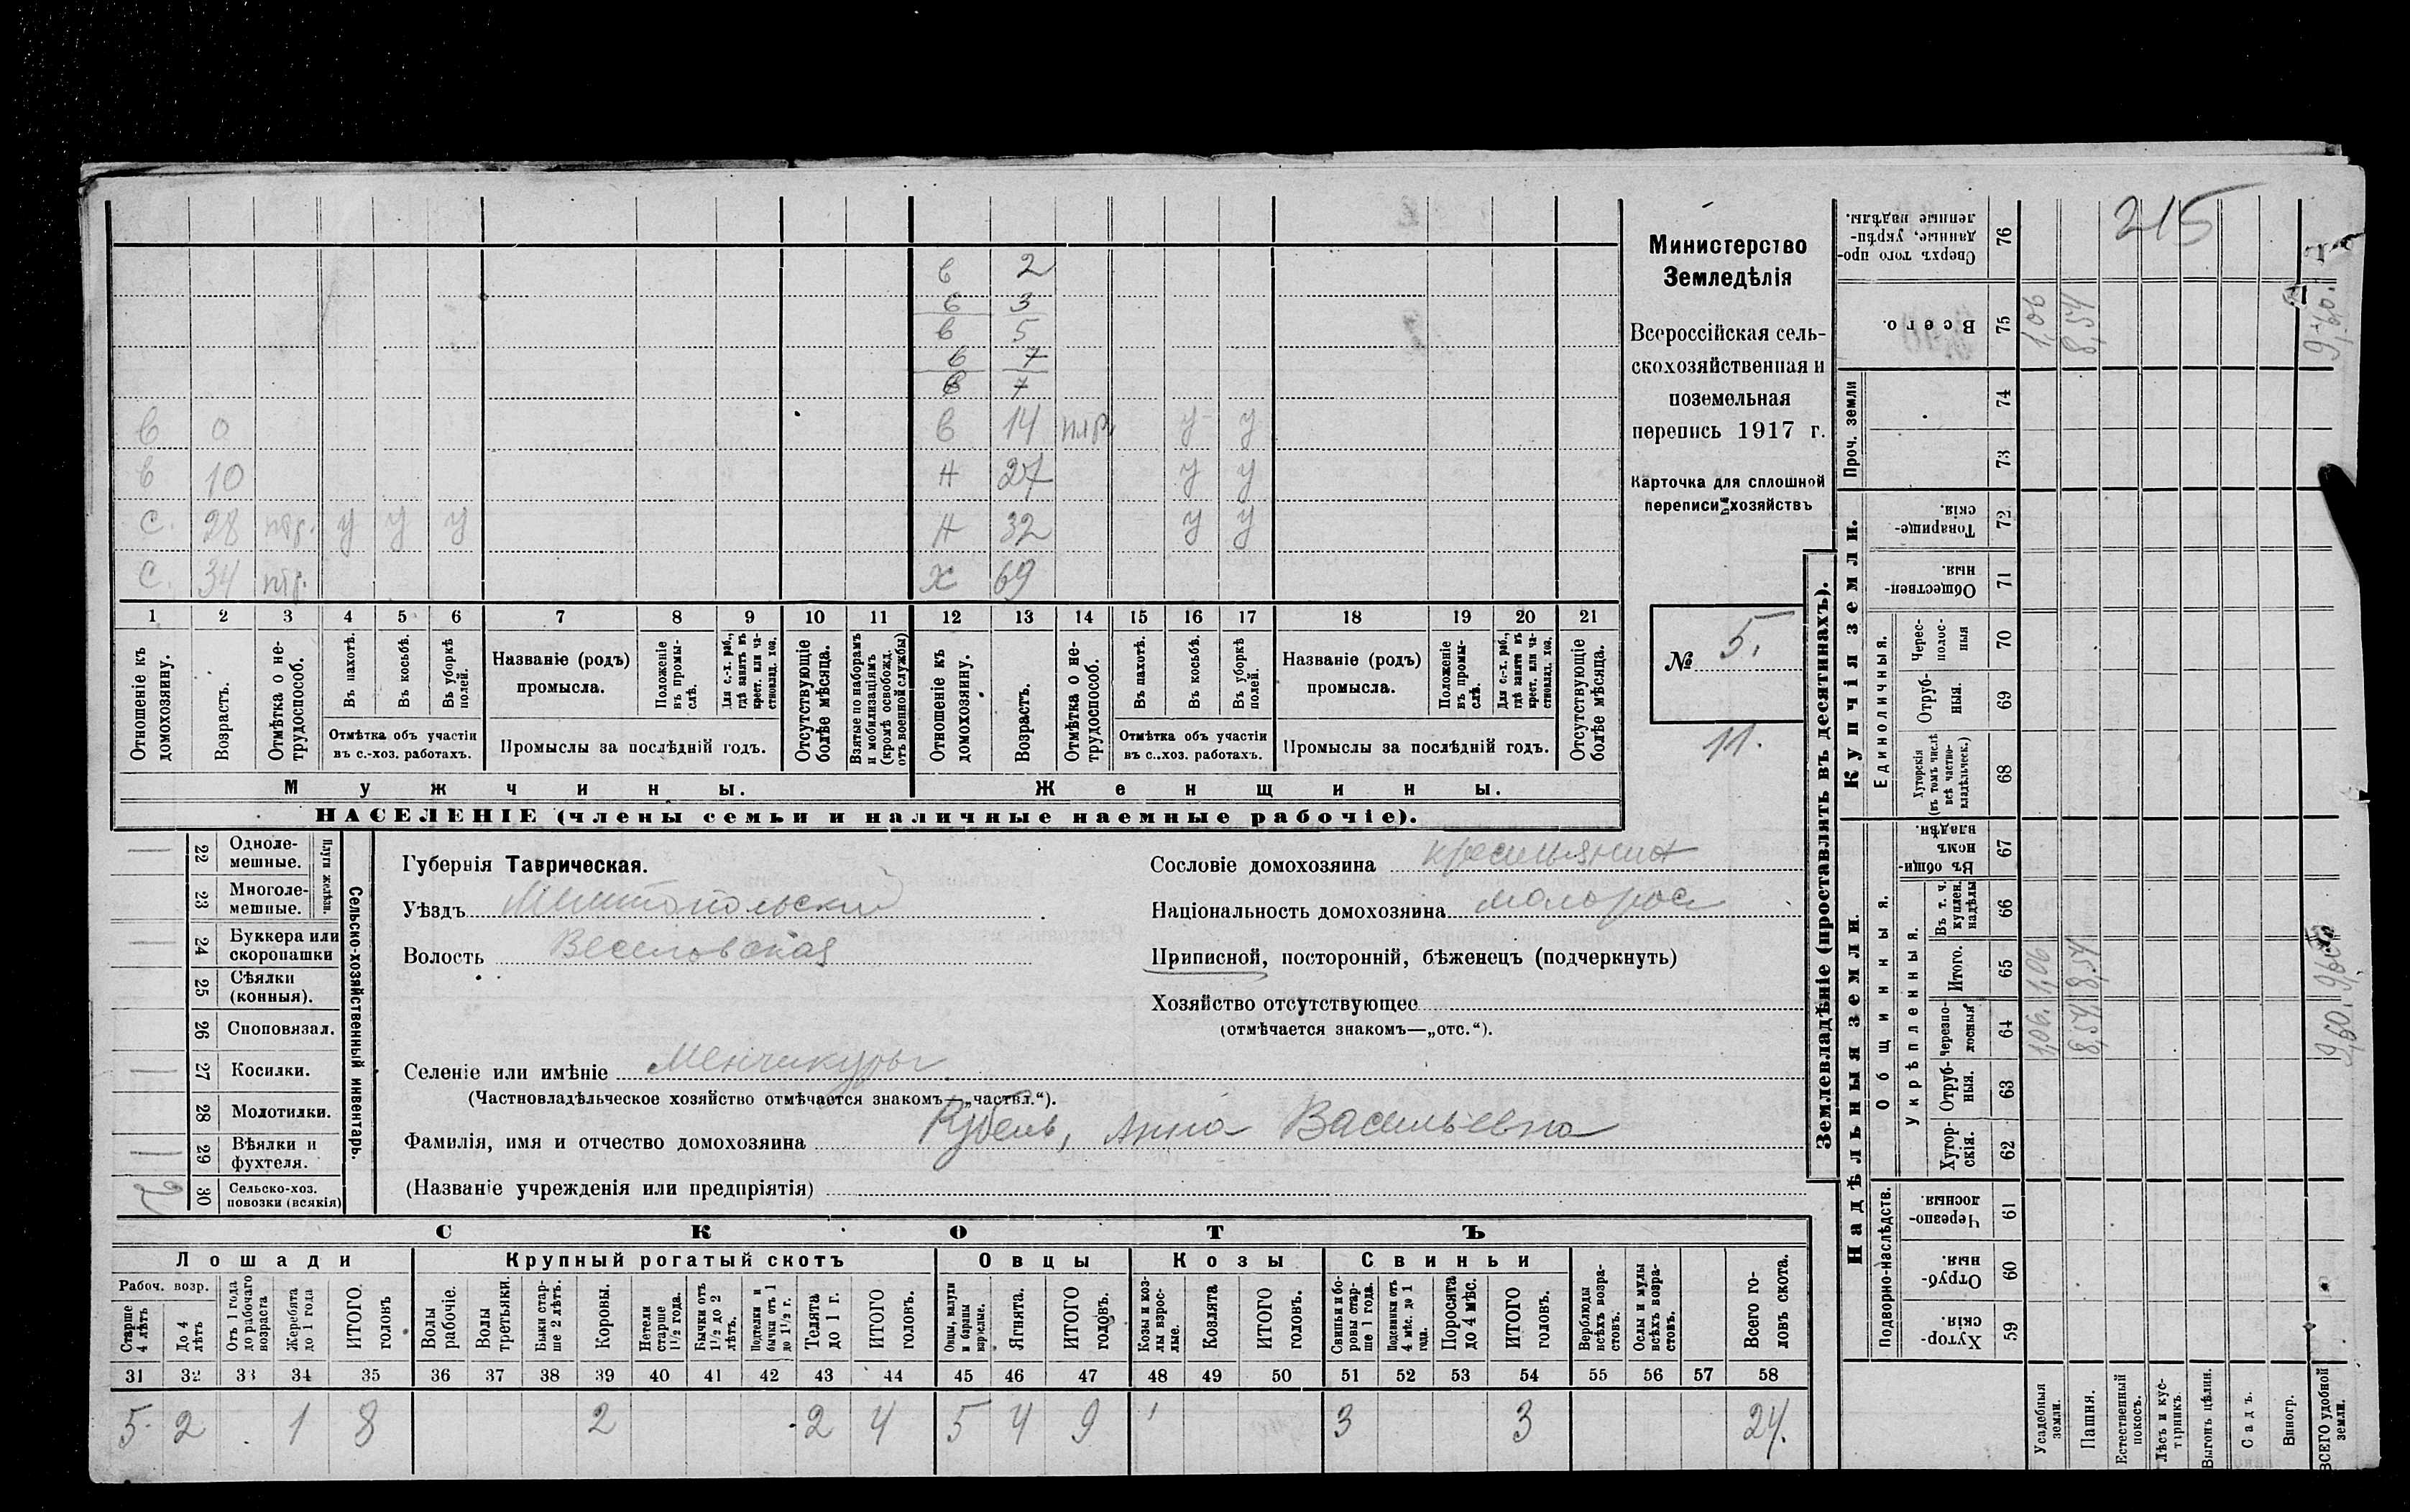 215
Министерство
Земледѣлія
Всероссійская сель-
скохозяйственная и
поземельная
перепись 1917 г.
Карточка для сплошной
переписи хозяйствъ
№ 5.
11.
в 2
в 3
в 5
в 7
в 7
в 0 в 14 у у
в 10 н 27 у у
с. 28 у у у н 32 у у
с. 34 х 69
1 2 3 4 5 6 7 8 9 10 11 12 13 14 15 16 17 18 19 20 21
Отношеніе къ домохозяину.
Возрастъ.
Отмѣтка о не-трудоспособ.
Въ пахотѣ.
Въ косьбѣ.
Въ уборкѣ полей.
Отмѣтка объ участіи
въ с.-хоз. работахъ.
Названіе (родъ)
промысла.
Положеніе въ промы-слѣ.
Для с.-х. раб., гдѣ занятъ въ крест. или ча-стновлад. хоз.
Промыслы за послѣдній годъ.
Отсутствующіе болѣе мѣсяца.
Взятые по наборамъ и мобилизаціямъ (кромѣ освобожд. отъ военной службы)
Отношеніе къ домохозяину.
Возрастъ.
Отмѣтка о не-трудоспособ.
Въ пахотѣ.
Въ косьбѣ.
Въ уборкѣ полей.
Отмѣтка объ участіи
въ с.-хоз. работахъ.
Названіе (родъ)
промысла.
Положеніе въ промы-слѣ.
Для с.-х. раб., гдѣ занята въ крест. или ча-стновлад. хоз.
Промыслы за послѣдній годъ.
Отсутствующіе болѣе мѣсяца.
Мужчины. Женщины.
НАСЕЛЕНІЕ (члены семьи и наличные наемные рабочіе).
Сельско-хозяйственный инвентарь.
Плуги желѣзн.
22 Одноле-мешные.
23 Многоле-мешные.
24 Буккера или скоропашки
25 Сѣялки (конныя).
26 Сноповязал.
27 Косилки.
28 Молотилки.
29 Вѣялки и фухтеля.
2 30 Сельско-хоз. повозки (всякія)
Губернія Таврическая.
Уѣздъ Мелитопольский
Волость Веселовская
Сословіе домохозяина
Національность домохозяина малорос
Приписной, посторонній, бѣженецъ (подчеркнуть)
Хозяйство отсутствующее
(отмѣчается знакомъ—„отс.“).
Селеніе или имѣніе Менчикуры
(Частновладѣльческое хозяйство отмѣчается знакомъ—„частвл.“).
Фамилія, имя и отчество домохозяина Кубель, Анна Васильевна
(Названіе учрежденія или предпріятія)
СКОТЪ
Лошади Крупный рогатый скотъ Овцы Козы Свиньи
Рабоч. возр.
Старше 4 лѣтъ
До 4 лѣтъ
Отъ 1 года до рабочаго возраста
Жеребята до 1 года
ИТОГО головъ
Волы рабочіе.
Волы третьяки.
Быки стар-ше 2 лѣтъ.
Коровы.
Нетели старше 1 1/2 года.
Бычки отъ 1 1/2 до 2 лѣтъ.
Подтелки и бычки отъ 1 до 1 1/2 г.
Телята до 1 г.
ИТОГО головъ.
Овцы, валухи и бараны взрослые.
Ягнята.
ИТОГО головъ.
Козы и коз-лы взрос-лые.
Козлята
ИТОГО головъ.
Свиньи и бо-ровы стар-ше 1 года.
Подсвинки отъ 4 мѣс. до 1 года.
Поросята до 4 мѣс.
ИТОГО головъ.
Верблюды всѣхъ возра-стовъ.
Ослы и мулы всѣхъ возра-стовъ.
Всего го-ловъ скота.
31 32 33 34 35 36 37 38 39 40 41 42 43 44 45 46 47 48 49 50 51 52 53 54 55 56 57 58
5 2 1 8 2 2 4 5 4 9 3 3 24.
Землевладѣніе (проставлять въ десятинахъ).
Надѣльныя земли.
Купчія земли.
Проч. земли
Подворно-наслѣдств.
Общинныя.
Укрѣпленныя.
Единоличныя.
Хутор-скія. 59
Отруб-ныя. 60
Черезпо-лосныя. 61
Хутор-скія. 62
Отруб-ныя. 63
Черезпо-лосныя 64 1,06. 8,54 9,60.
Итого. 65 1,06 8,54 9,60
Въ т. ч. куплен. надѣлы 66
Въ общи-номъ владѣн. 67
Хуторскія (въ томъ числѣ всѣ частно-владѣльческ.) 68
Отруб-ныя. 69
Черес-полос-ныя 70
Обществен-ныя. 71
Товарище-скія. 72
73
74
Всего. 75 1,06 8,54 9,60.
Сверхъ того про-данные, укрѣп-ленные надѣлы. 76
Усадебныя земли.
Пашня.
Естественный покосъ.
Лѣсъ и кус-тарникъ.
Выгонъ цѣлин.
Садъ.
Виногр.
ВСЕГО удобной земли.